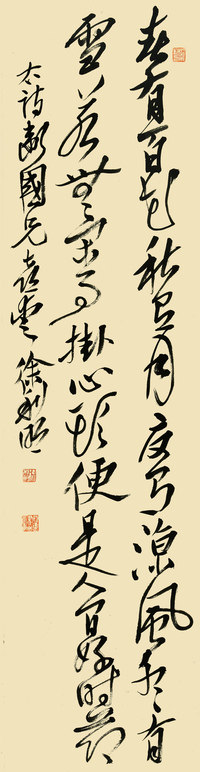 春有百花秋有月夏有涼風冬有
雪若無閒事掛心頭便是人間好時節
詩國兄徐利明